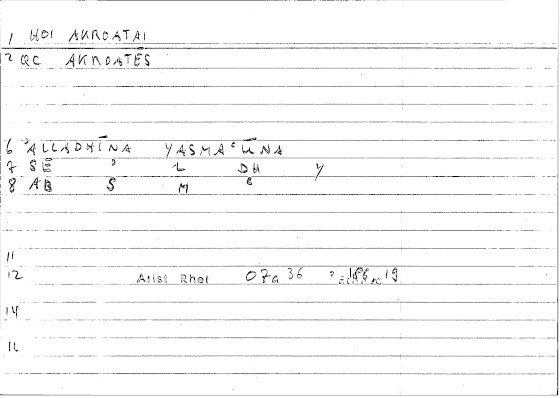 1 HOI AKROATAI
2 QC AKROATĒS
6 ʾALLADHĪNA YASMAʿŪNA
7 SE ʾ L DH Y
8 AB S M ʿ
11
12 Arist Rhet 07a 36
14